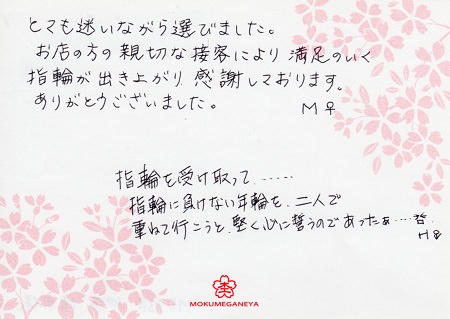 とても迷いながら選びました。
お店の方の親切な接客により満足のいく
指輪が出き上がり感謝しております。
ありがとうございました。
M♀
指輪を受け取って……
指輪に負けない年輪を、二人で
重ねて行こうと、堅く心に誓うのであったぁ…
MOKUMEGANEYA